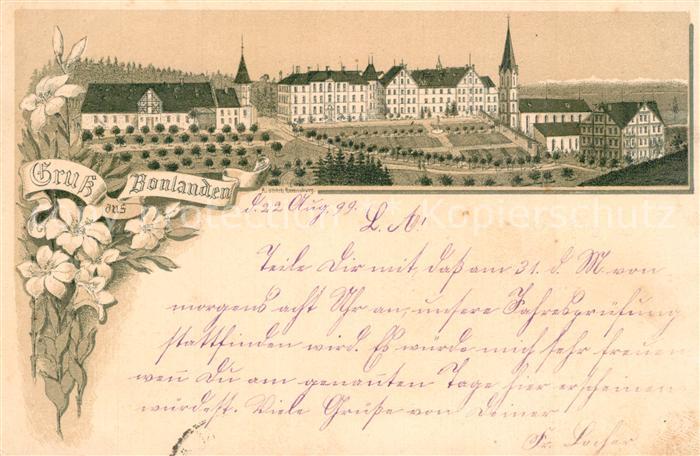 Gruß
aus
Bonlanden
d. 22 Aug 99.
L. A!
Teile Dir mit, daß am 31. d. M. von
morgens acht Uhr an, unsere Jahresprüfung
stattfinden wird. Es würde mich sehr freuen
weñ Du am genañten Tage hier erscheinen
würdest. Viele Grüße von Deiner
Fr. Locher